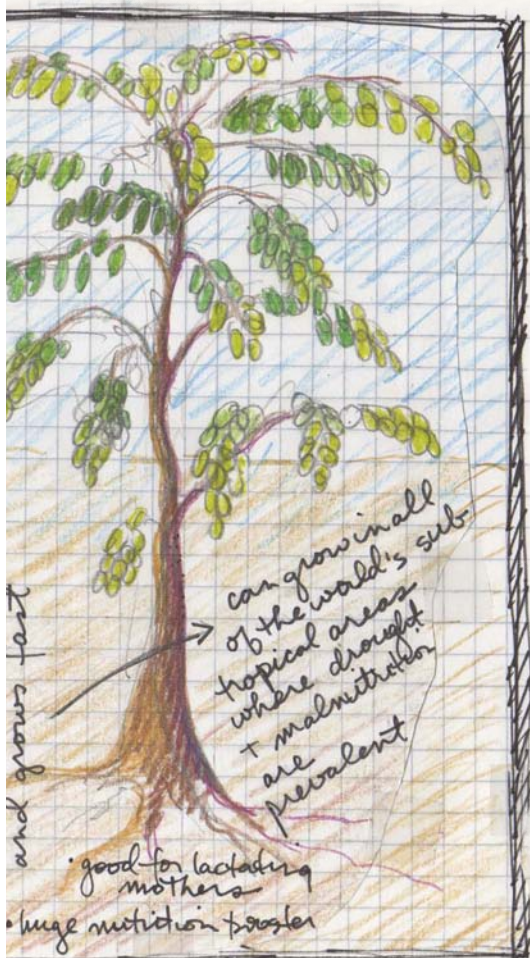 and grows fast
can grow in all
of the world's sub-
tropical areas
where drought
+ malnutrition
are
prevalent
· good for lactating
mothers
· huge nutrition booster